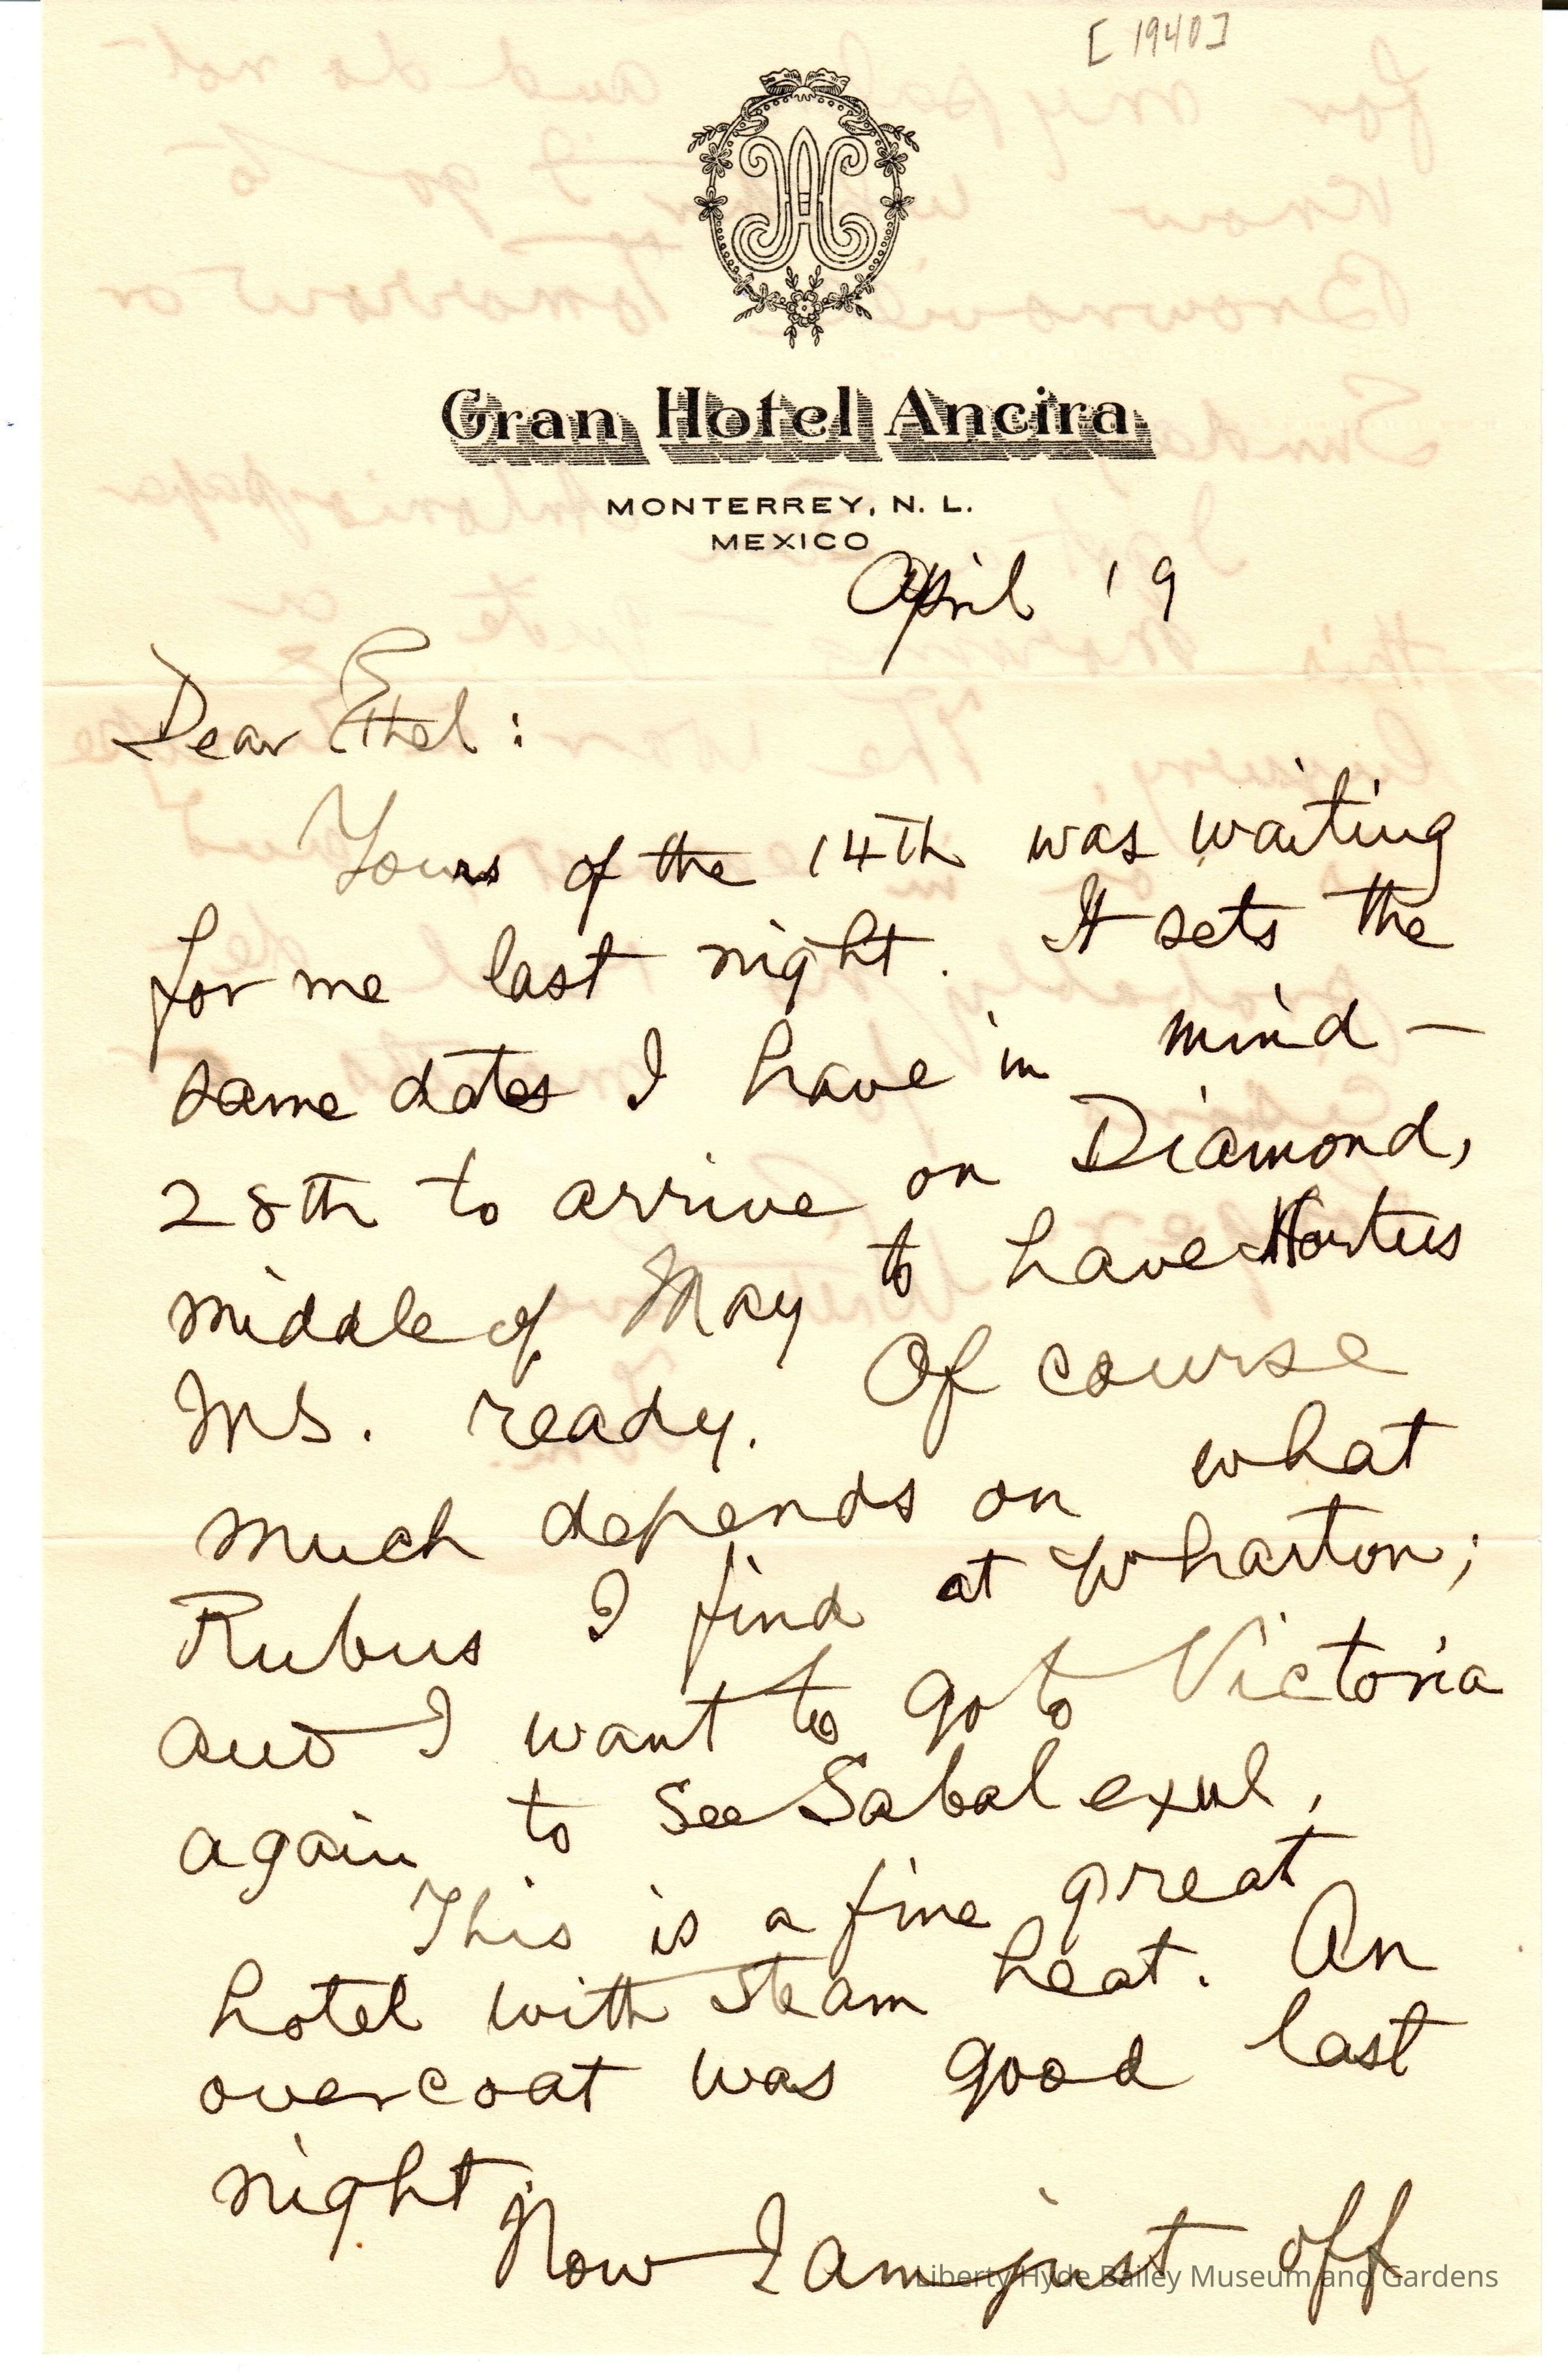 [1940]
Gran Hotel Ancira
MONTERREY, N. L.
MEXICO
April 19
Dear Ethel:
Yours of the 14th was waiting
for me last night. It sets the
same dates I have in mind —
28th to arrive on Diamond,
middle of May to have Hortus
MS. ready. Of course
much depends on what
Rubus I find at Wharton;
and I want to go to Victoria
again to see Sabal exul.
This is a fine great
hotel with steam heat. An
overcoat was good last
night.
Now I am just off
Liberty Hyde Bailey Museum and Gardens